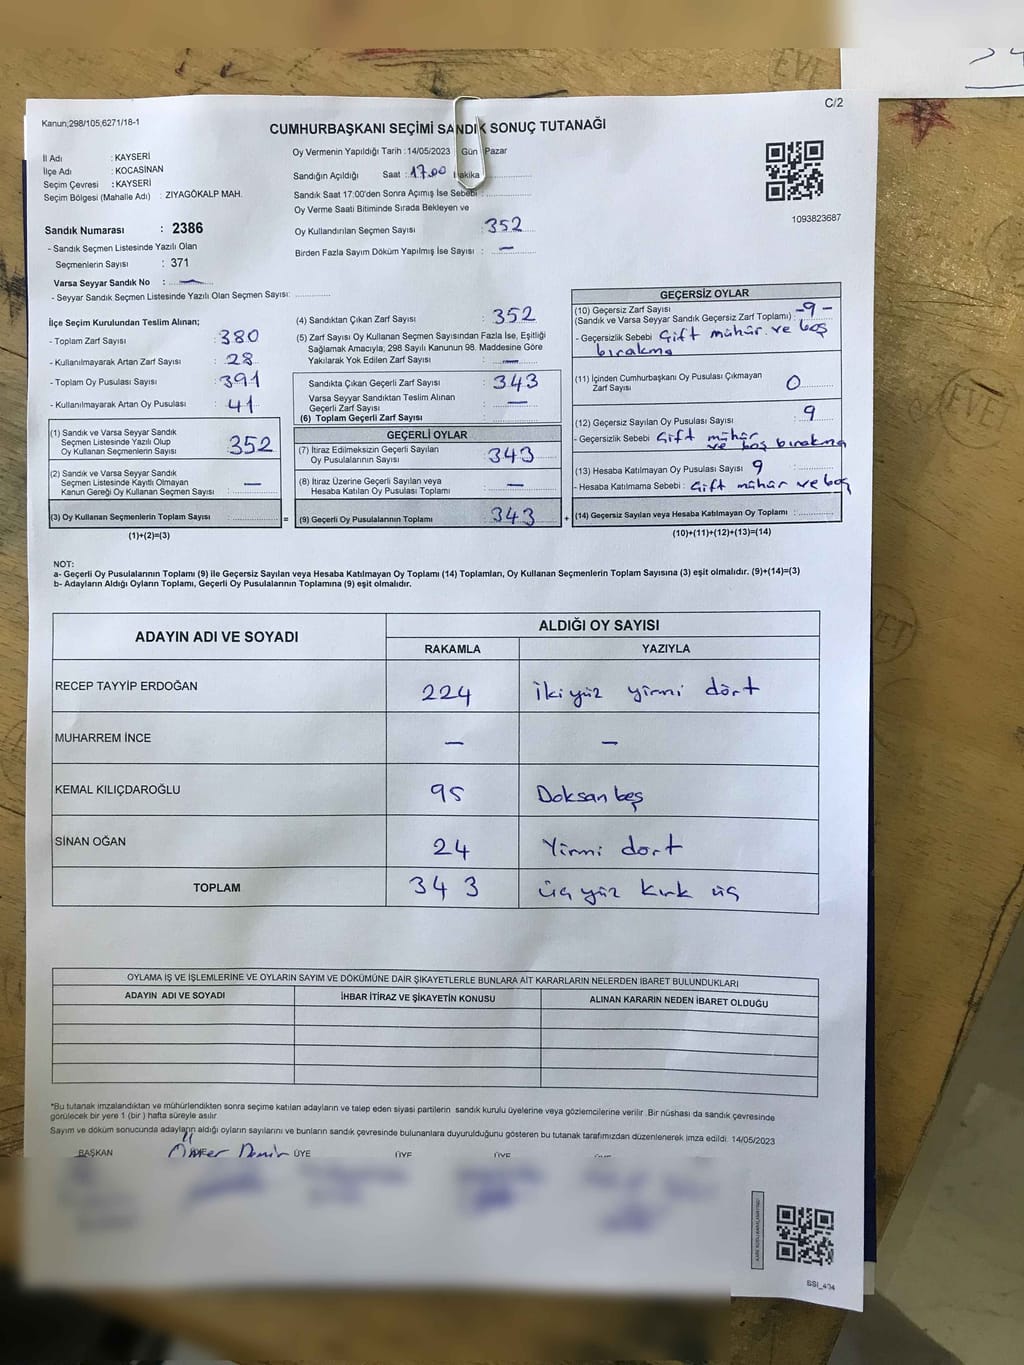 C/2
Kanun;298/105,6271/18-1
CUMHURBAŞKANI SEÇİMİ SANDIK SONUÇ TUTANAĞI
İl Adı : KAYSERİ
İlçe Adı : KOCASİNAN
Seçim Çevresi : KAYSERİ
Seçim Bölgesi (Mahalle Adı) : ZİYAGÖKALP MAH.
Sandık Numarası : 2386
- Sandık Seçmen Listesinde Yazılı Olan
Seçmenlerin Sayısı : 371
Varsa Seyyar Sandık No : —
- Seyyar Sandık Seçmen Listesinde Yazılı Olan Seçmen Sayısı: ............
Oy Vermenin Yapıldığı Tarih : 14/05/2023 Gün Pazar
Sandığın Açıldığı Saat : 17.00
Sandık Saat 17:00'den Sonra Açımış İse Sebebi
Oy Verme Saati Bitiminde Sırada Bekleyen ve
Oy Kullandırılan Seçmen Sayısı : 352
Birden Fazla Sayım Döküm Yapılmış İse Sayısı : —
1093823687
İlçe Seçim Kurulundan Teslim Alınan;
- Toplam Zarf Sayısı : 380
- Kullanılmayarak Artan Zarf Sayısı : 28
- Toplam Oy Pusulası Sayısı : 391
- Kullanılmayarak Artan Oy Pusulası : 41
(1) Sandık ve Varsa Seyyar Sandık
Seçmen Listesinde Yazılı Olup
Oy Kullanan Seçmenlerin Sayısı : 352
(2) Sandık ve Varsa Seyyar Sandık
Seçmen Listesinde Kayıtlı Olmayan
Kanun Gereği Oy Kullanan Seçmen Sayısı : —
(3) Oy Kullanan Seçmenlerin Toplam Sayısı : ............ =
(1)+(2)=(3)
(4) Sandıktan Çıkan Zarf Sayısı : 352
(5) Zarf Sayısı Oy Kullanan Seçmen Sayısından Fazla İse, Eşitliği
Sağlamak Amacıyla, 298 Sayılı Kanunun 98. Maddesine Göre
Yakılarak Yok Edilen Zarf Sayısı : —
Sandıkta Çıkan Geçerli Zarf Sayısı : 343
Varsa Seyyar Sandıktan Teslim Alınan
Geçerli Zarf Sayısı : —
(6) Toplam Geçerli Zarf Sayısı
GEÇERLİ OYLAR
(7) İtiraz Edilmeksizin Geçerli Sayılan
Oy Pusulalarının Sayısı : 343
(8) İtiraz Üzerine Geçerli Sayılan veya
Hesaba Katılan Oy Pusulası Toplamı : —
(9) Geçerli Oy Pusulalarının Toplamı : 343 +
GEÇERSİZ OYLAR
(10) Geçersiz Zarf Sayısı
(Sandık ve Varsa Seyyar Sandık Geçersiz Zarf Toplamı) : -9-
- Geçersizlik Sebebi Çift mühür ve boş
bırakma
(11) İçinden Cumhurbaşkanı Oy Pusulası Çıkmayan
Zarf Sayısı 0
(12) Geçersiz Sayılan Oy Pusulası Sayısı : 9
- Geçersizlik Sebebi Çift mühür
ve boş bırakma
(13) Hesaba Katılmayan Oy Pusulası Sayısı 9
- Hesaba Katılmama Sebebi : Çift mühür ve boş
(14) Geçersiz Sayılan veya Hesaba Katılmayan Oy Toplamı : ............
(10)+(11)+(12)+(13)=(14)
NOT:
a- Geçerli Oy Pusulalarının Toplamı (9) ile Geçersiz Sayılan veya Hesaba Katılmayan Oy Toplamı (14) Toplamları, Oy Kullanan Seçmenlerin Toplam Sayısına (3) eşit olmalıdır. (9)+(14)=(3)
b- Adayların Aldığı Oyların Toplamı, Geçerli Oy Pusulalarının Toplamına (9) eşit olmalıdır.
ADAYIN ADI VE SOYADI ALDIĞI OY SAYISI
RAKAMLA YAZIYLA
RECEP TAYYİP ERDOĞAN 224 İkiyüz yirmi dört
MUHARREM İNCE — —
KEMAL KILIÇDAROĞLU 95 Doksan beş
SİNAN OĞAN 24 Yirmi dört
TOPLAM 343 üç yüz kırk üç
OYLAMA İŞ VE İŞLEMLERİNE VE OYLARIN SAYIM VE DÖKÜMÜNE DAİR ŞİKAYETLERLE BUNLARA AİT KARARLARIN NELERDEN İBARET BULUNDUKLARI
ADAYIN ADI VE SOYADI İHBAR İTİRAZ VE ŞİKAYETİN KONUSU ALINAN KARARIN NEDEN İBARET OLDUĞU
*Bu tutanak imzalandıktan ve mühürlendikten sonra seçime katılan adayların ve talep eden siyasi partilerin sandık kurulu üyelerine veya gözlemcilerine verilir .Bir nüshası da sandık çevresinde
görülecek bir yere 1 (bir ) hafta süreyle asılır.
Sayım ve döküm sonucunda adayların aldığı oyların sayılarını ve bunların sandık çevresinde bulunanlara duyurulduğunu gösteren bu tutanak tarafımızdan düzenlenerek imza edildi. 14/05/2023
BAŞKAN Ömer Demir ÜYE ÜYE ÜYE